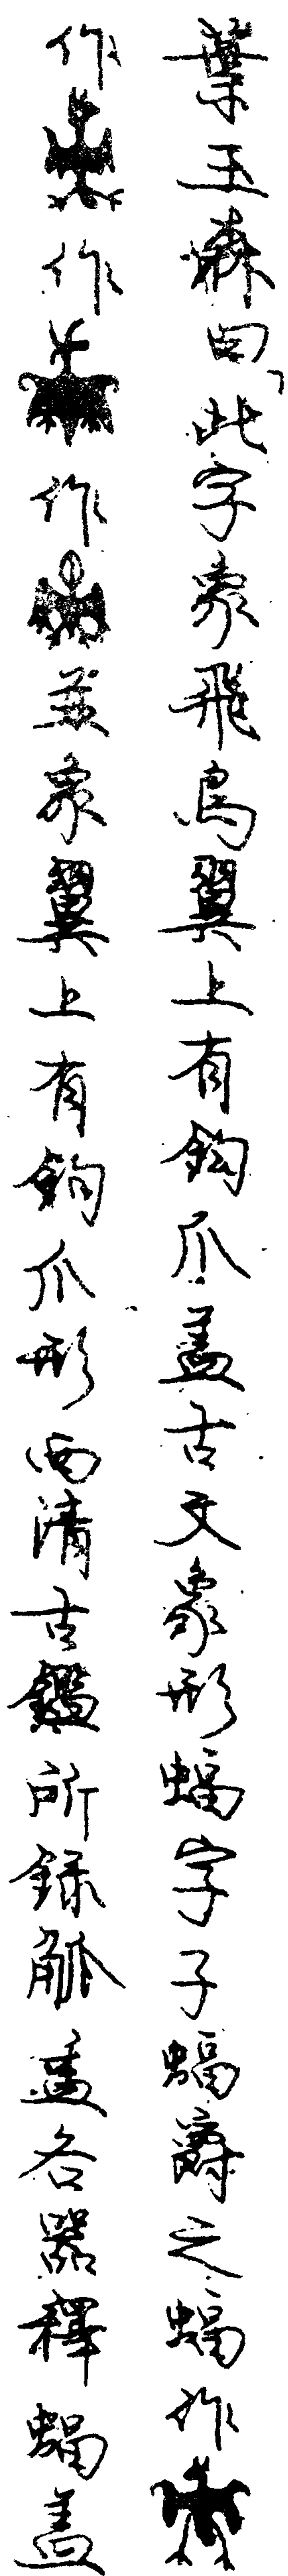 葉玉森曰「此字象飛鳥翼上有鈎爪蓋古文象形蝠字子蝠爵之蝠作
作作作並象翼上有鈎爪形西清古鑑所録觚盉各器釋蝠蓋